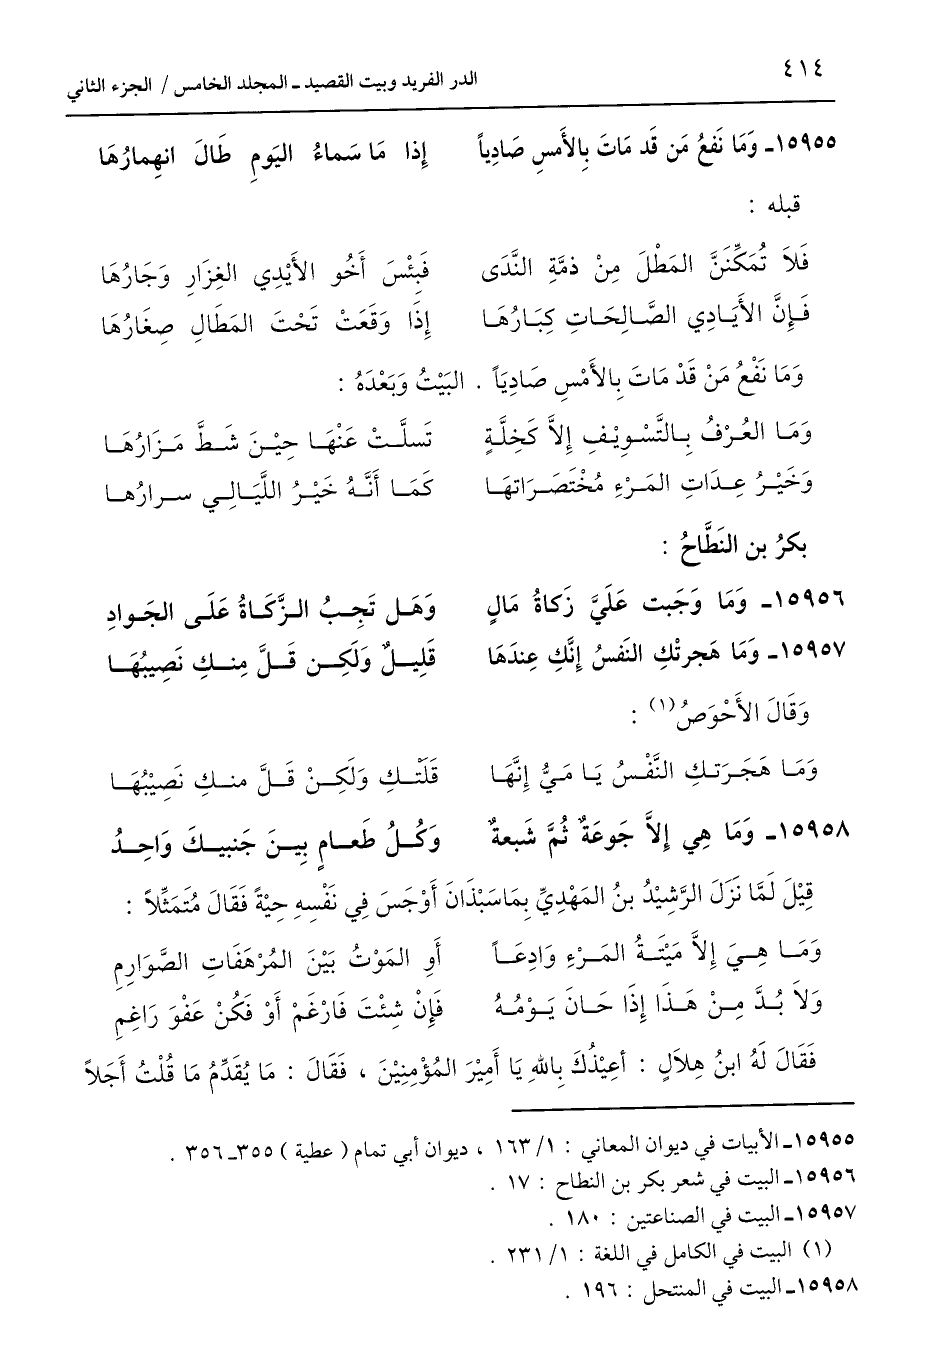 ٤١٤
الدر الفريد وبيت القصيد ـ المجلد الخامس / الجزء الثاني
١٥٩٥٥ـ وَمَا نَفعُ مَن قَد مَاتَ بِالأَمسِ صَادِياً إِذا مَا سَماءُ اليَومِ طَالَ انهِمارُهَا
قبله :
فَلاَ تُمَكِّنَنَّ المَطْلَ مِنْ ذمَّةِ النَّدَى فَبِئْسَ أَخُو الأَيْدِي الغِزَارِ وَجَارُهَا
فَإِنَّ الأَيَادِي الصَّالِحَاتِ كِبَارُهَا إِذَا وَقَعَتْ تَحْتَ المَطَالِ صِغَارُهَا
وَمَا نَفْعُ مَنْ قَدْ مَاتَ بِالأَمْسِ صَادِيَاً . البَيْتُ وَبَعْدَهُ :
وَمَا العُرْفُ بِالتَّسْوِيفِ إِلاَّ كَخِلَّةٍ تَسلَّتْ عَنْهَا حِيْنَ شَطَّ مَزَارُهَا
وَخَيْرُ عِدَاتِ المَرْءِ مُخْتَصَرَاتهَا كَمَا أَنَّهُ خَيْرُ اللَّيَالِي سرارُها
بكرُ بن النَطَّاحُ :
١٥٩٥٦ـ وَمَا وَجَبت عَلَيَّ زَكاةُ مَالٍ وَهَل تَجِبُ الزَّكَاةُ عَلَى الجَوادِ
١٥٩٥٧ـ وَمَا هَجرتْكِ النَفسُ إِنَّكِ عِندَهَا قَلِيلٌ وَلَكِن قَلَّ مِنكِ نَصِيبُهَا
وَقَالَ الأَحْوَصُ(١) :
وَمَا هَجَرَتكِ النَّفْسُ يَا مَيُّ إِنَّهَا قَلَتْكِ وَلَكِنْ قَلَّ منكِ نَصِيْبُهَا
١٥٩٥٨ـ وَمَا هِي إِلاَّ جَوعَةٌ ثُمَّ شَبعةٌ وَكُلُ طَعامٍ بِينَ جَنبيكَ وَاحِدُ
قِيْلَ لَمَّا نَزَلَ الرَّشِيْدُ بنُ المَهْدِيِّ بِمَاسَبْذَانَ أَوْجَسَ فِي نَفْسِهِ حِيْةً فَقَالَ مُتَمَثِّلاً :
وَمَا هِيَ إِلاَّ مَيْتَةُ المَرْءِ وَادِعَاً أَوِ المَوْتُ بَيْنَ المُرْهَفَاتِ الصَّوَارِمِ
وَلاَ بُدَّ مِنْ هَذَا إِذَا حَانَ يَوْمُهُ فَإِنْ شِئْتَ فَارْغَمْ أَوْ فَكُنْ عَفْوَ رَاغِمِ
فَقَالَ لَهُ ابنُ هِلاَلٍ : أعِيْذُكَ بِاللهِ يَا أَمِيْرَ المُؤْمِنِيْنَ ، فَقَالَ : مَا يُقَدِّمُ مَا قُلْتُ أَجَلاً
١٥٩٥٥ـ الأبيات في ديوان المعاني : ١/ ١٦٣ ، ديوان أبي تمام ( عطية ) ٣٥٥ـ ٣٥٦ .
١٥٩٥٦ـ البيت في شعر بكر بن النطاح : ١٧ .
١٥٩٥٧ـ البيت في الصناعتين : ١٨٠ .
(١) البيت في الكامل في اللغة : ١/ ٢٣١ .
١٥٩٥٨ـ البيت في المنتحل : ١٩٦ .